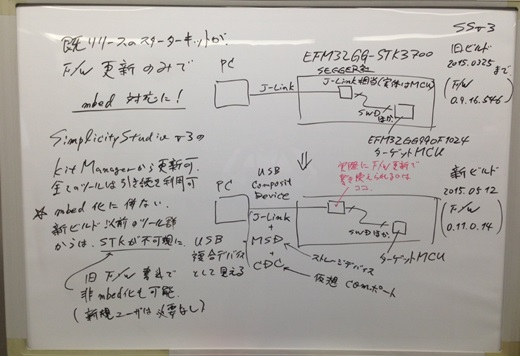 既リリースのスターターキットが、
F/W 更新のみで
mbed 対応に!
Simplicity Studio v3の
Kit Managerから更新可
全てのツールは引き続き利用可
* mbed 化に伴ない
新ビルド以前のツール群
からは、STKが不可視に
旧 F/W 書戻で
非mbed化も可能
(新規ユーザは必要なし)
EFM32GG-STK3700
SEGGER社
J-Link 担当(実体はMCU)
PC
J-Link
SWDほか
EFM32GG990F1024
ターゲットMCU
SSv3
旧ビルド
2015.0325
まで
(F/W
0.9.16.546)
⇓
実際にF/W更新で
書き換えられるのは
ココ
PC
USB
Composit
Device
J-Link
+
MSD
+
CDC
USB
複合デバイス
として見える
ストレージデバイス
仮想 COMポート
SWDほか
ターゲットMCU
新ビルド
2015.05.12
(F/W
0.11.0.14)